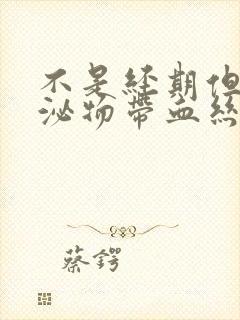 不是經期但
泌物帶血絲
蔡鍔